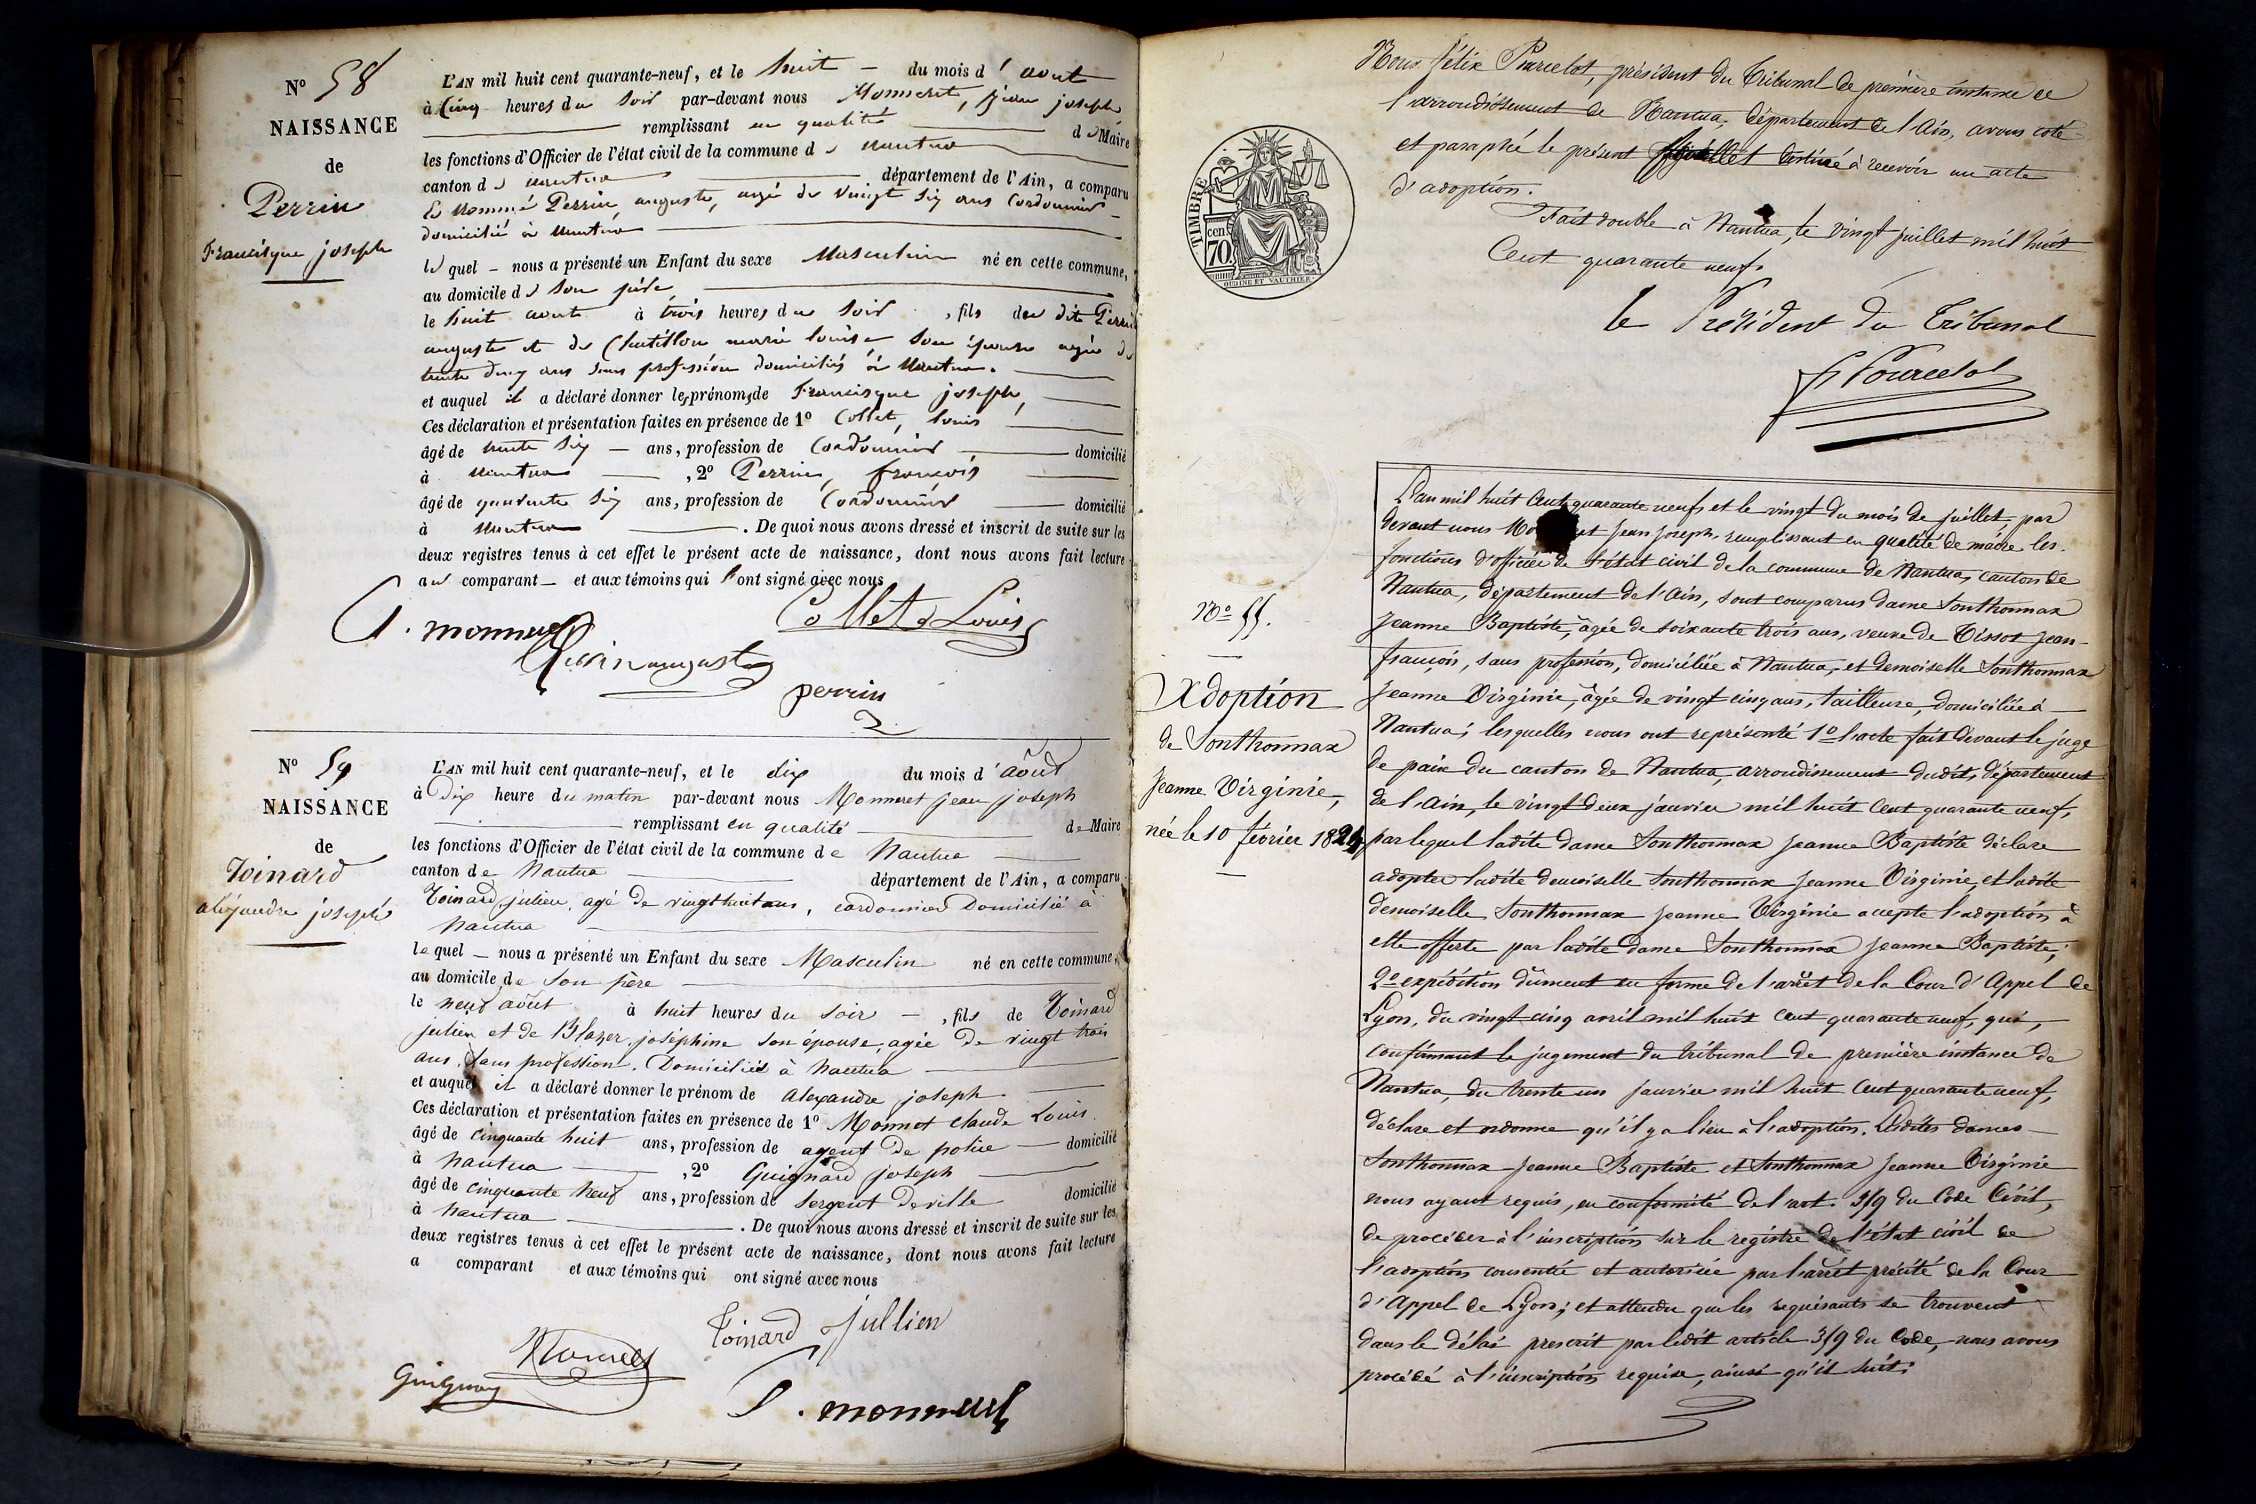 N° 58
NAISSANCE
de
Perrin
Francisque joseph
L'AN mil huit cent quarante-neuf, et le huit du mois d'aout
à Cinq heures du soir par-devant nous Monneret, jean joseph
remplissant en qualité de Maire
les fonctions d'Officier de l'état civil de la commune de nantua
canton de nantua département de l'Ain, a comparu
le nommé Perrin, auguste, agé de vingt six ans Cordonnier
domicilié à nantua
lequel nous a présenté un Enfant du sexe Masculin né en cette commune,
au domicile de son père
le huit aout à trois heures du soir, fils du dit Perrin
auguste et de Chatillon marie louise son épouse agée de
trente cinq ans sans profession domiciliés à Nantua.
et auquel il a déclaré donner les prénoms de Francisque joseph,
Ces déclaration et présentation faites en présence de 1° Collet, louis
âgé de trente six ans, profession de Cordonnier domicilié
à nantua, 2° Perrin, françois
âgé de quarante six ans, profession de Cordonnier domicilié
à nantua. De quoi nous avons dressé et inscrit de suite sur les
deux registres tenus à cet effet le présent acte de naissance, dont nous avons fait lecture
au comparant et aux témoins qui l'ont signé avec nous
Collet Louis
Perrin auguste
perrin
N° 59
NAISSANCE
de
Toinard
alexandre joseph
L'AN mil huit cent quarante-neuf, et le dix du mois d'août
à Dix heure du matin par-devant nous Monneret jean joseph
remplissant en qualité de Maire
les fonctions d'Officier de l'état civil de la commune de Nantua
canton de Nantua département de l'Ain, a comparu
Toinard julien, agé de vingt huit ans, cordonnier Domicilié à
Nantua
lequel nous a présenté un Enfant du sexe Masculin né en cette commune,
au domicile de son père
le neuf août à huit heures du soir, fils de Toinard
julien et de Blazer joséphine son épouse, agée de vingt trois
ans, sans profession. Domiciliés à Nantua
et auquel il a déclaré donner le prénom de alexandre joseph
Ces déclaration et présentation faites en présence de 1° Monnot claude Louis
âgé de cinquante huit ans, profession de agent de police domicilié
à Nantua, 2° Guignard joseph
âgé de cinquante neuf ans, profession de sergent de ville domicilié
à Nantua. De quoi nous avons dressé et inscrit de suite sur les
deux registres tenus à cet effet le présent acte de naissance, dont nous avons fait lecture
a comparant et aux témoins qui ont signé avec nous
Toinard Jullien
Nous Félix Pourcelot, président du Tribunal de première instance de
l'arrondissement de Nantua, département de l'Ain, avons coté
et paraphé le présent feuillet destiné à recevoir un acte
d'adoption.
Fait double à Nantua, le vingt juillet mil huit
Cent quarante neuf.
le Président du Tribunal
Pourcelot
TIMBRE
70 cent
OUDINÉ ET VAUTHIER
N° 55.
Adoption
de Sonthonnax
Jeanne Virginie,
née le 10 février 1824
L'an mil huit Cent quarante neuf et le vingt du mois de juillet, par
devant nous Jean Joseph, remplissant en qualité de maire les
fonctions d'officier de l'état civil de la commune de Nantua, canton de
Nantua, département de l'Ain, sont comparus dame Sonthonnax
Jeanne Baptiste, âgée de soixante trois ans, veuve de Tissot Jean-
françois, sans profession, domiciliée à Nantua, et demoiselle Sonthonnax
Jeanne Virginie, âgée de vingt cinq ans, tailleuse, domiciliée à
Nantua; lesquelles nous ont représenté 1° l'acte fait devant le juge
de paix du canton de Nantua, arrondissement dudit, département
de l'Ain, le vingt deux janvier mil huit Cent quarante neuf,
par lequel ladite dame Sonthonnax Jeanne Baptiste déclare
adopter ladite demoiselle Sonthonnax Jeanne Virginie, et ladite
demoiselle Sonthonnax Jeanne Virginie accepte l'adoption à
elle offerte par ladite dame Sonthonnax Jeanne Baptiste;
2° expédition dûment en forme de l'arrêt de la Cour d'Appel de
Lyon, du vingt cinq avril mil huit cent quarante neuf, qui,
confirmant le jugement du tribunal de première instance de
Nantua, du trente un janvier mil huit Cent quarante neuf,
déclare et ordonne qu'il y a lieu à l'adoption. Lesdites dames
Sonthonnax Jeanne Baptiste et Sonthonnax Jeanne Virginie
nous ayant requis, en conformité de l'art. 359 du Code Civil,
de procéder à l'inscription sur le registre de l'état civil de
l'adoption consentie et autorisée par l'arrêt précité de la Cour
d'Appel de Lyon; et attendu que les requisants se trouvent
dans le délai prescrit par ledit article 359 du Code, nous avons
procédé à l'inscription requise, ainsi qu'il suit: